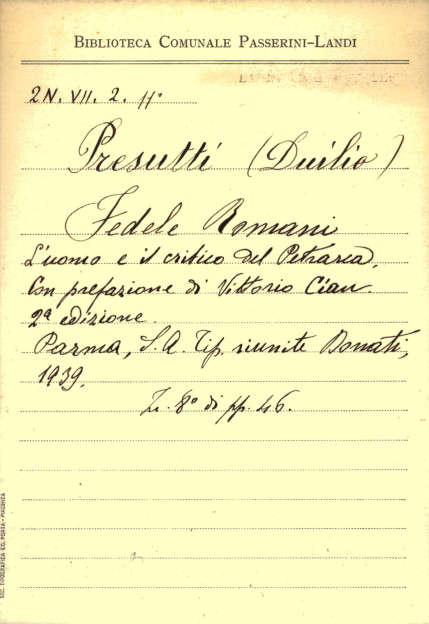 BIBLIOTECA COMUNALE PASSERINI-LANDI
2N. VII. 2. 11°
Presutti (Duilio)
Fedele Romani
L'uomo e il critico del Petrarca.
Con prefazione di Vittorio Cian.
2ª edizione.
Parma, S. A. Tip. riunite Donati,
1939.
In 8° di pp. 46.
SOC. TIPOGRAFICA ED. PORTA - PIACENZA